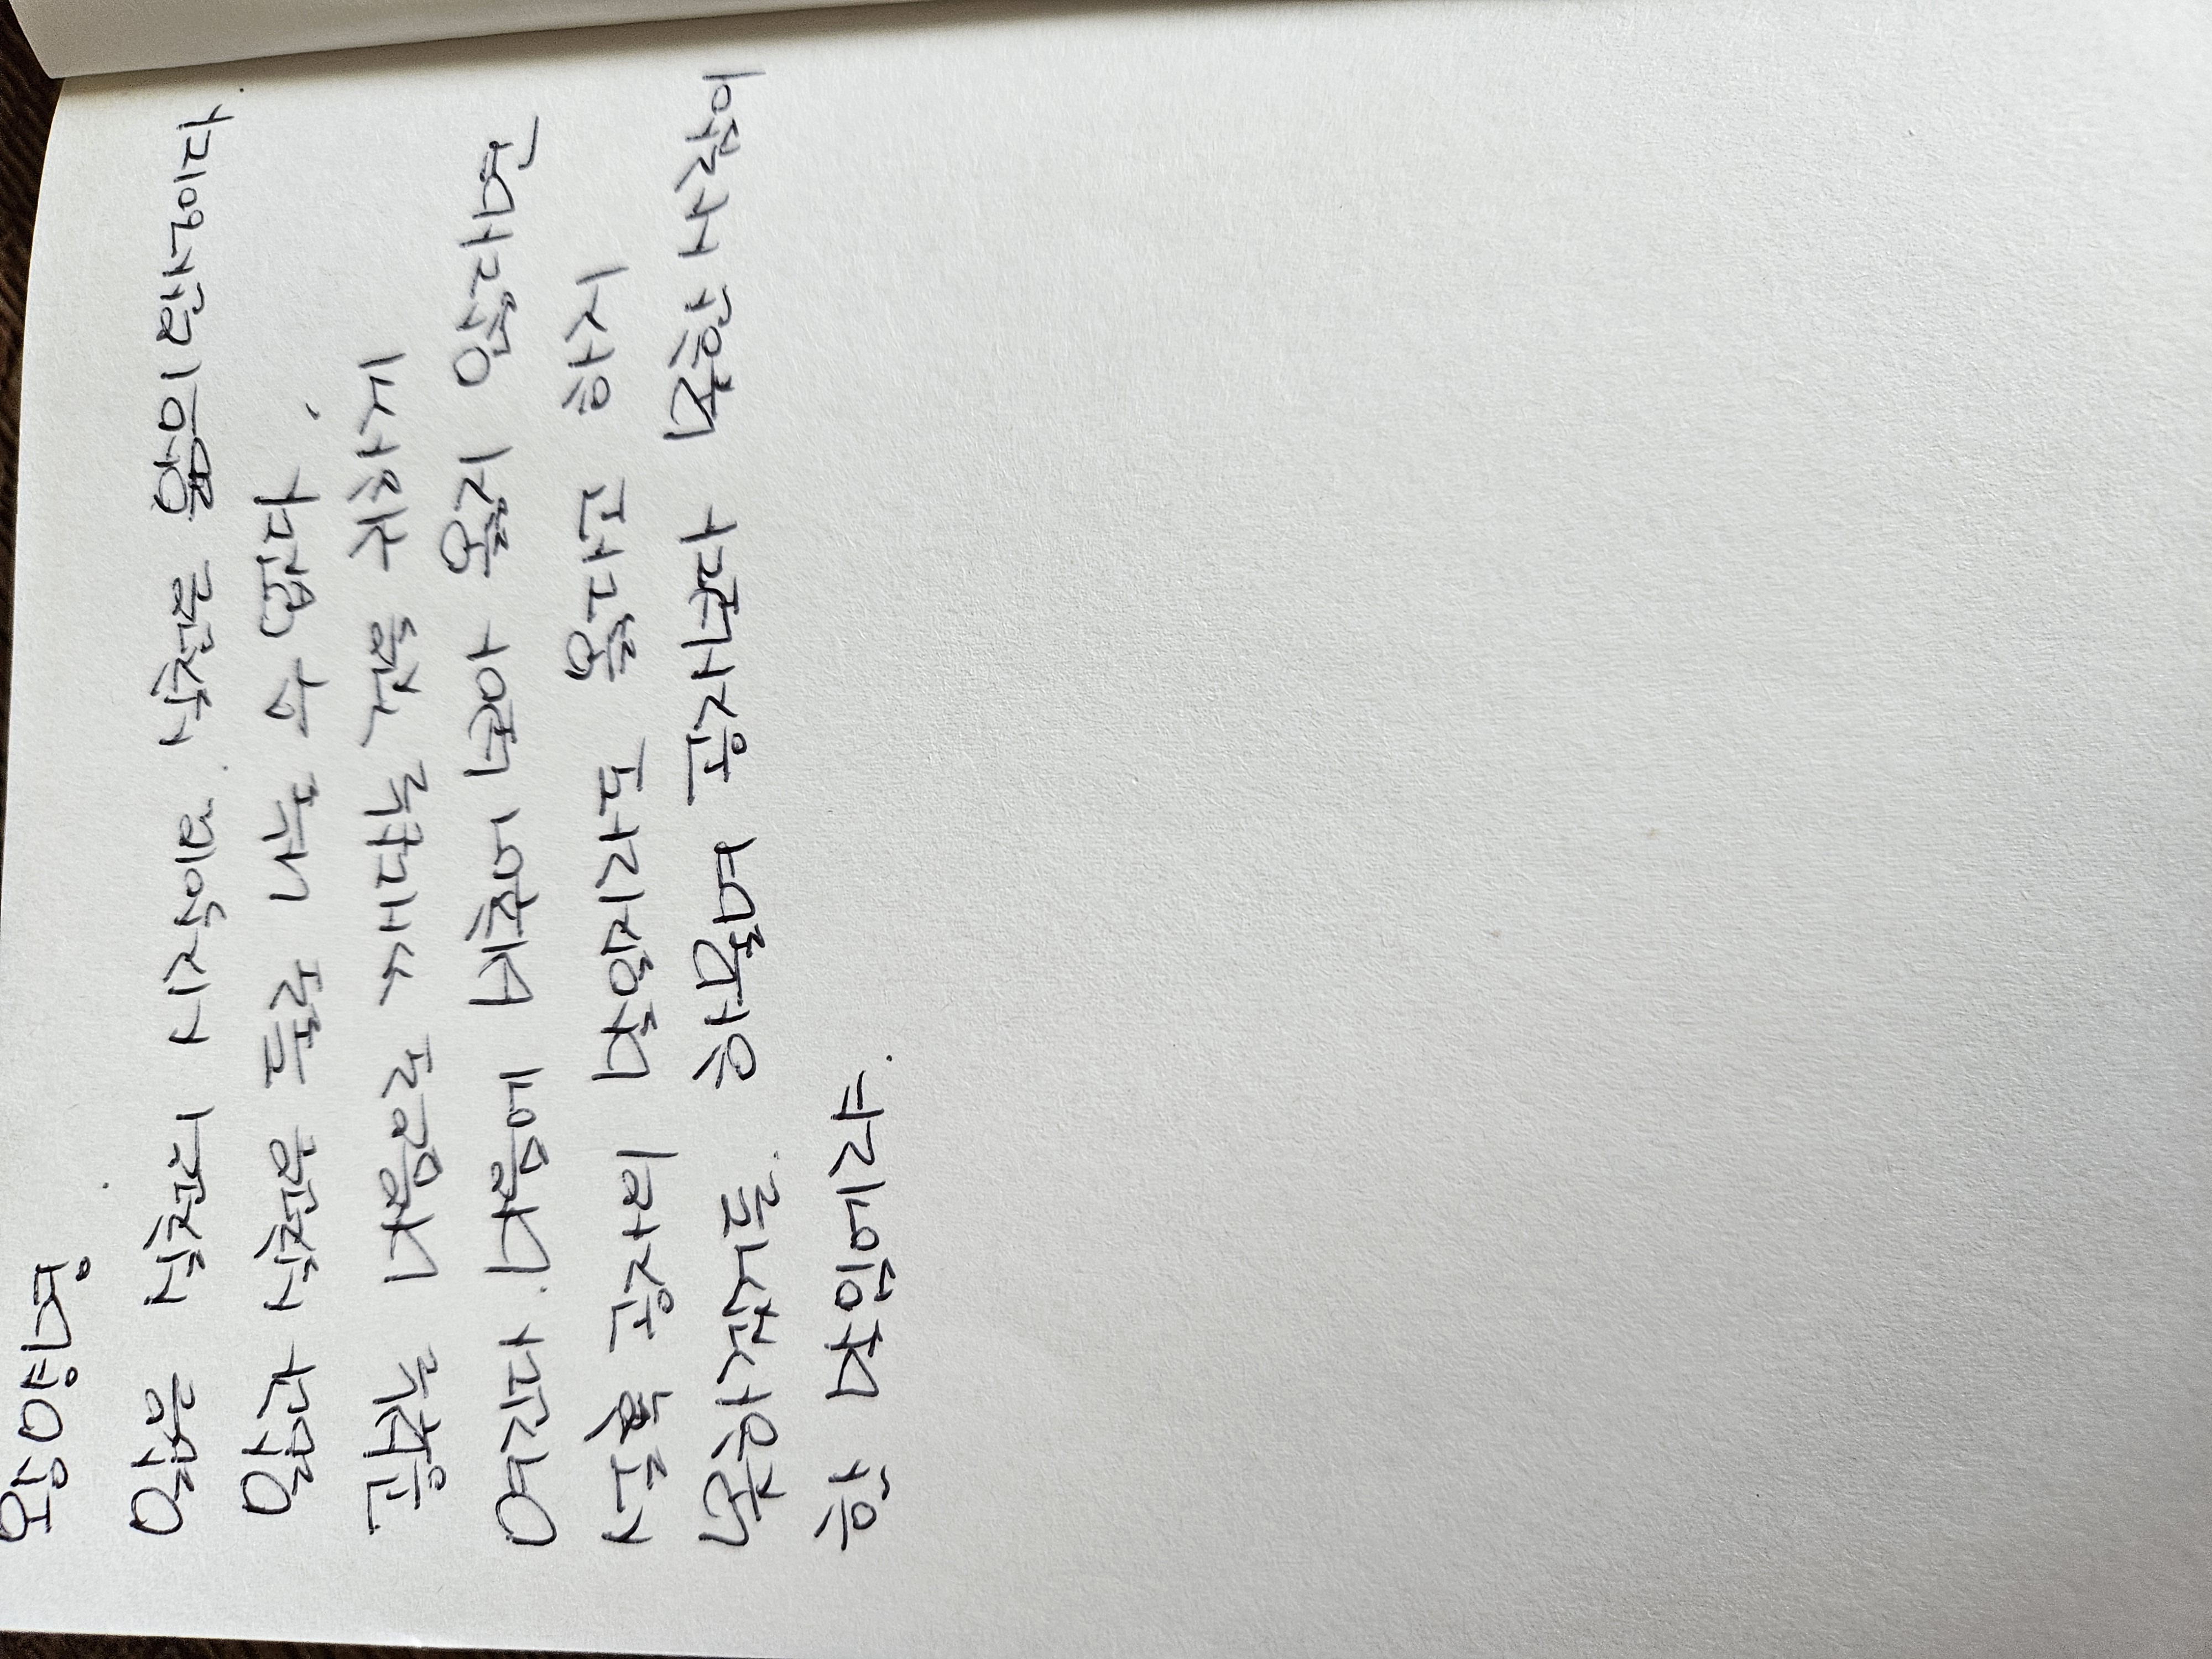 왕양명
앎은 실천의 시작이요. 실천은 앎의 완성이다.
앎과 실천은 둘로 나눌 수 없다.
공부는 마음으로 깨닫는 것을 귀하게
여긴다. 마음에 비추어 보아 옳지 않다면
설혹 공자의 말일지라도 옳다고 하지
못하겠거든. 하물며 공자보다 못한 사람이
한 말임에랴.